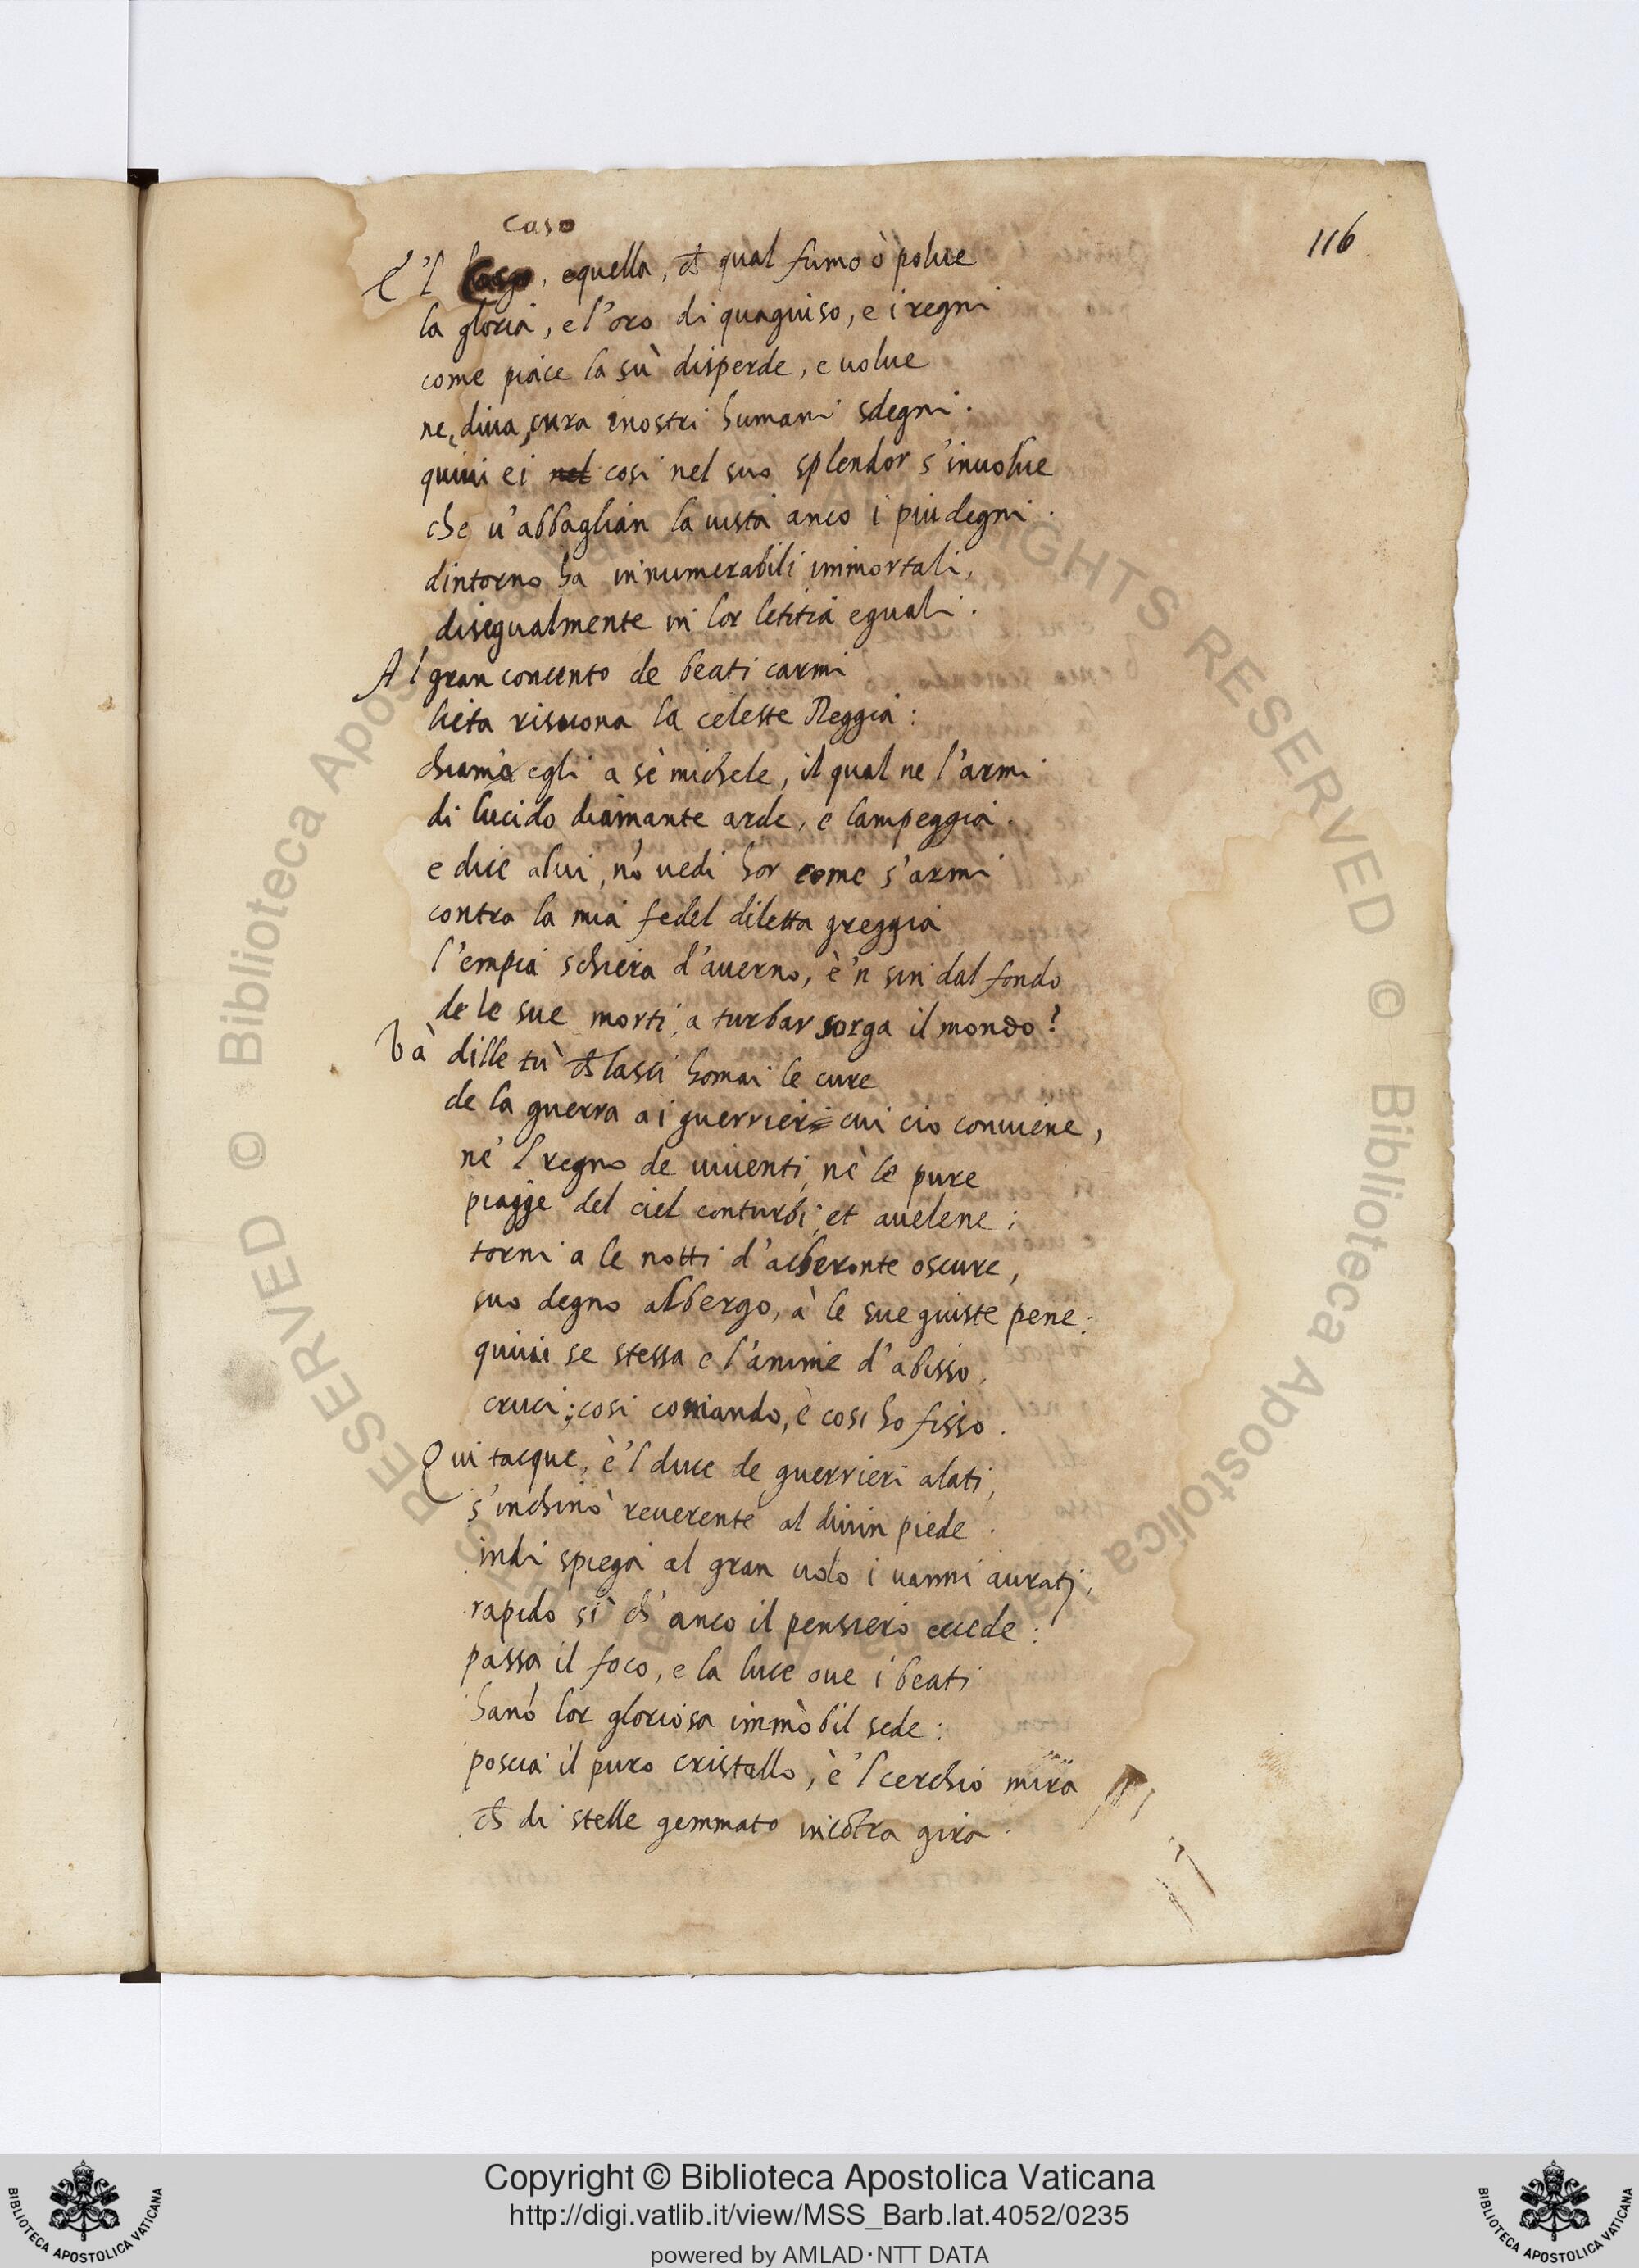 caso
116
E 'l caso, e quella, ch̃ qual fumo ò polue
la gloria, e l'oro di quagiuso, e i regni
come piace la sù disperde, e uolue
ne, diua, cura i nostri humani sdegni.
quiui ei nel cosi nel suo splendor s'inuolue
che u'abbaglian la uista anco i piu degni.
dintorno ha innumerabili immortali,
disegualmente in lor letitia eguali.
Al gran concento de beati carmi
lieta risuona la celeste Reggia:
chiama egli a sè michele, il qual ne l'armi
di lucido diamante arde, e lampeggia.
e dice a lui, nō uedi hor come s'armi
contra la mia fedel diletta greggia
l'empia schiera d'auerno, è 'n sin dal fondo
de le sue morti, a turbar sorga il mondo?
Và dille tù ch̃ lasci homai le cure
de la guerra a i guerrieri cui cio conuiene,
nè 'l regno de uiuenti, nè le pure
piagge del ciel conturbi, et auelene;
torni a le notti d'acheronte oscure,
suo degno albergo, à le sue giuste pene:
quiui se stessa e l'anime d'abisso,
cruci; cosi comando, è cosi ho fisso.
Qui tacque, è 'l duce de guerrieri alati,
s'inchinò reuerente al diuin piede.
indi spiega al gran uolo i uanni aurati,
rapido sì ch'anco il pensiero eccede:
passa il foco, e la luce oue i beati
hanō lor gloriosa immòbil sede:
poscia il puro cristallo, è 'l cerchio mira
ch̃ di stelle gemmato incōtra gira.
© Biblioteca Apostolica Vaticana ALL RIGHTS RESERVED
BIBLIOTECA APOSTOLICA VATICANA
Copyright © Biblioteca Apostolica Vaticana
http://digi.vatlib.it/view/MSS_Barb.lat.4052/0235
powered by AMLAD·NTT DATA
BIBLIOTECA APOSTOLICA VATICANA